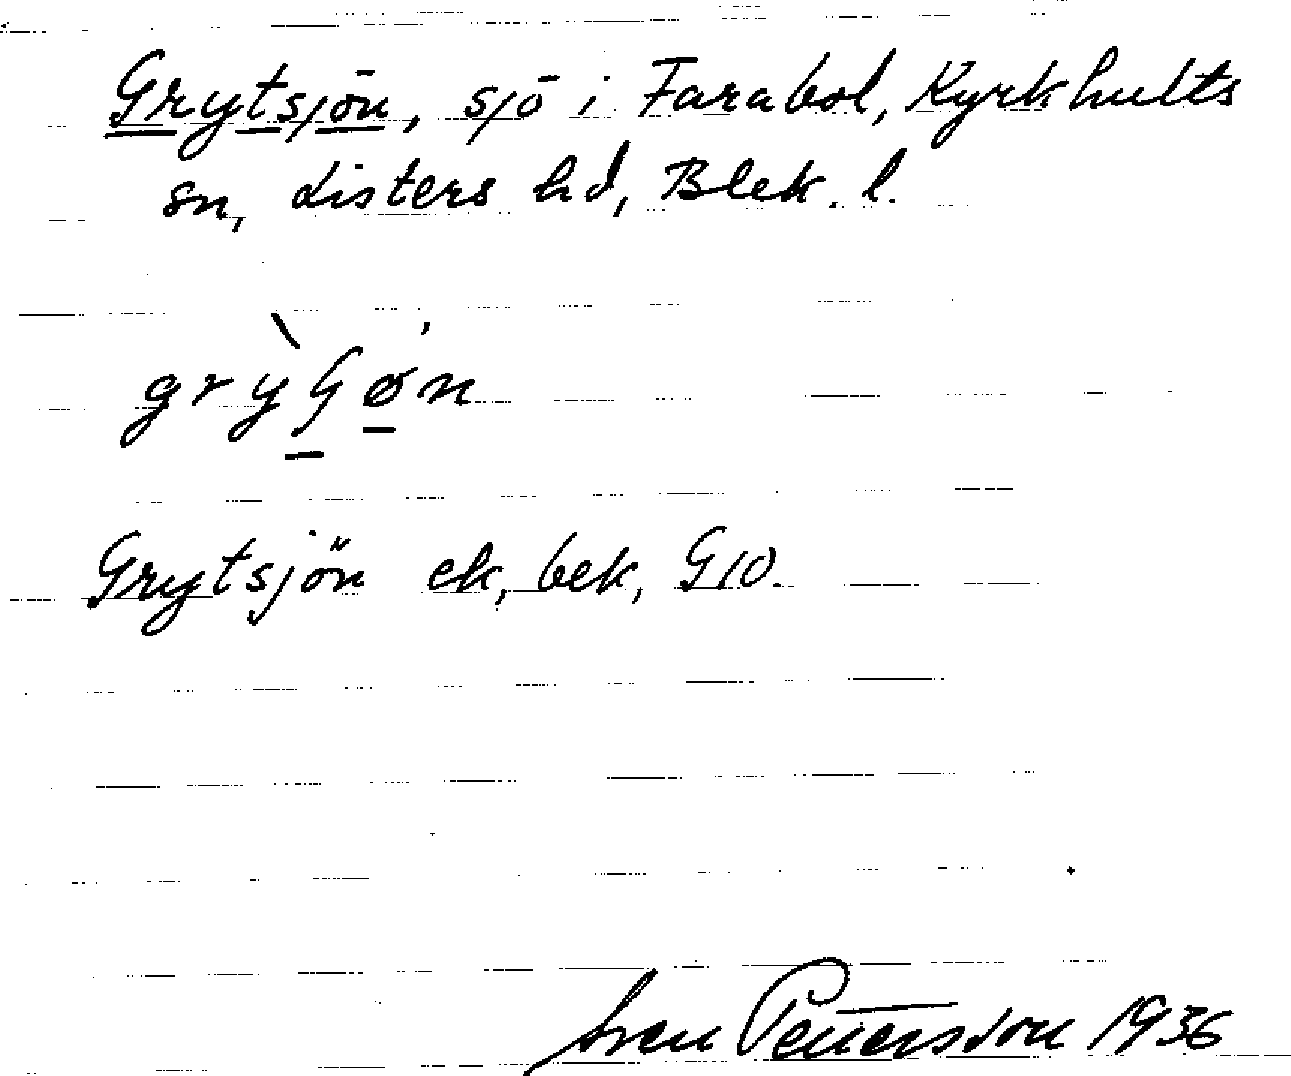 Grytsjön, sjö i Farabol, Kyrkhults
sn, Listers hd, Blek. l.
Grytsjön ek, bek, G10.
Sven Pettersson 1936